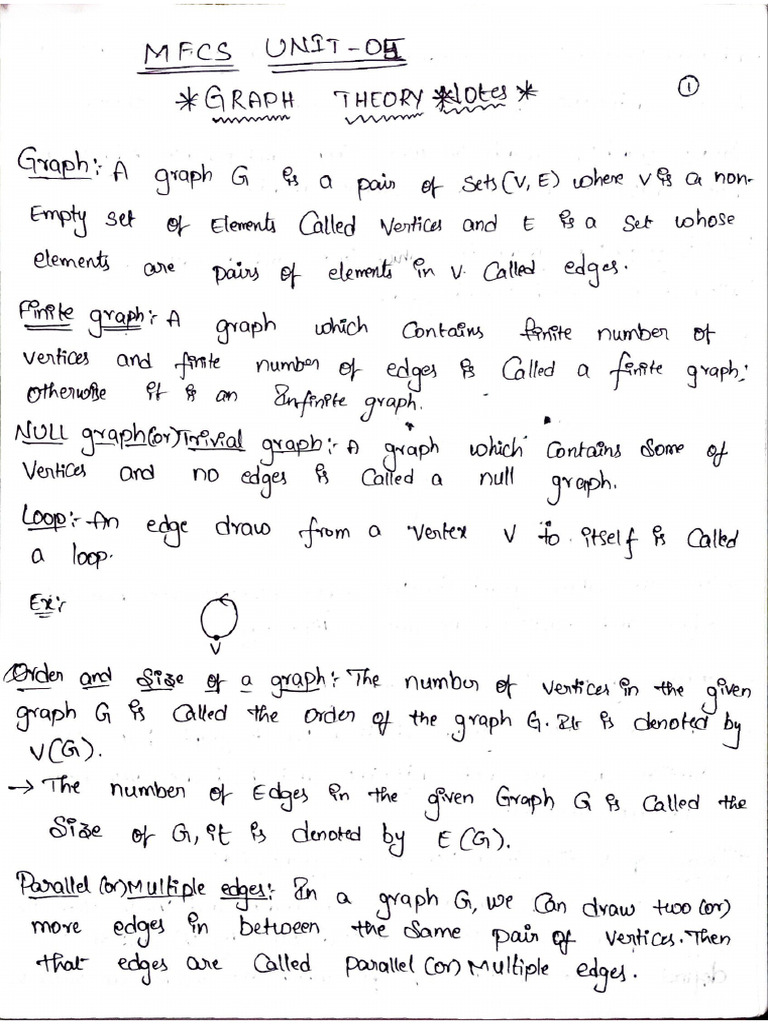 MFCS UNIT-05
*GRAPH THEORY *Notes*
1
Graph:- A graph G is a pair of sets(V,E) where V is a non-
Empty set of Elements Called Vertices and E is a Set whose
elements are pairs of elements in V. Called edges.
Finite graph:- A graph which Contains finite number of
vertices and finite number of edges is Called a finite graph;
otherwise it is an Infinite graph.
NULL graph(or)Trivial graph:- A graph which Contains Some of
Vertices and no edges is Called a null graph.
Loop:- An edge draw from a Vertex V to itself is Called
a loop.
Ex:-
V
Order and Size of a graph:- The number of vertices in the given
graph G is Called the Order of the graph G. It is denoted by
V(G).
→ The number of Edges in the given Graph G is Called the
Size of G, it is denoted by E(G).
Parallel (or) Multiple edges:- In a graph G, we Can draw two (or)
more edges in between the Same pair of vertices. Then
that edges are Called parallel (or) Multiple edges.